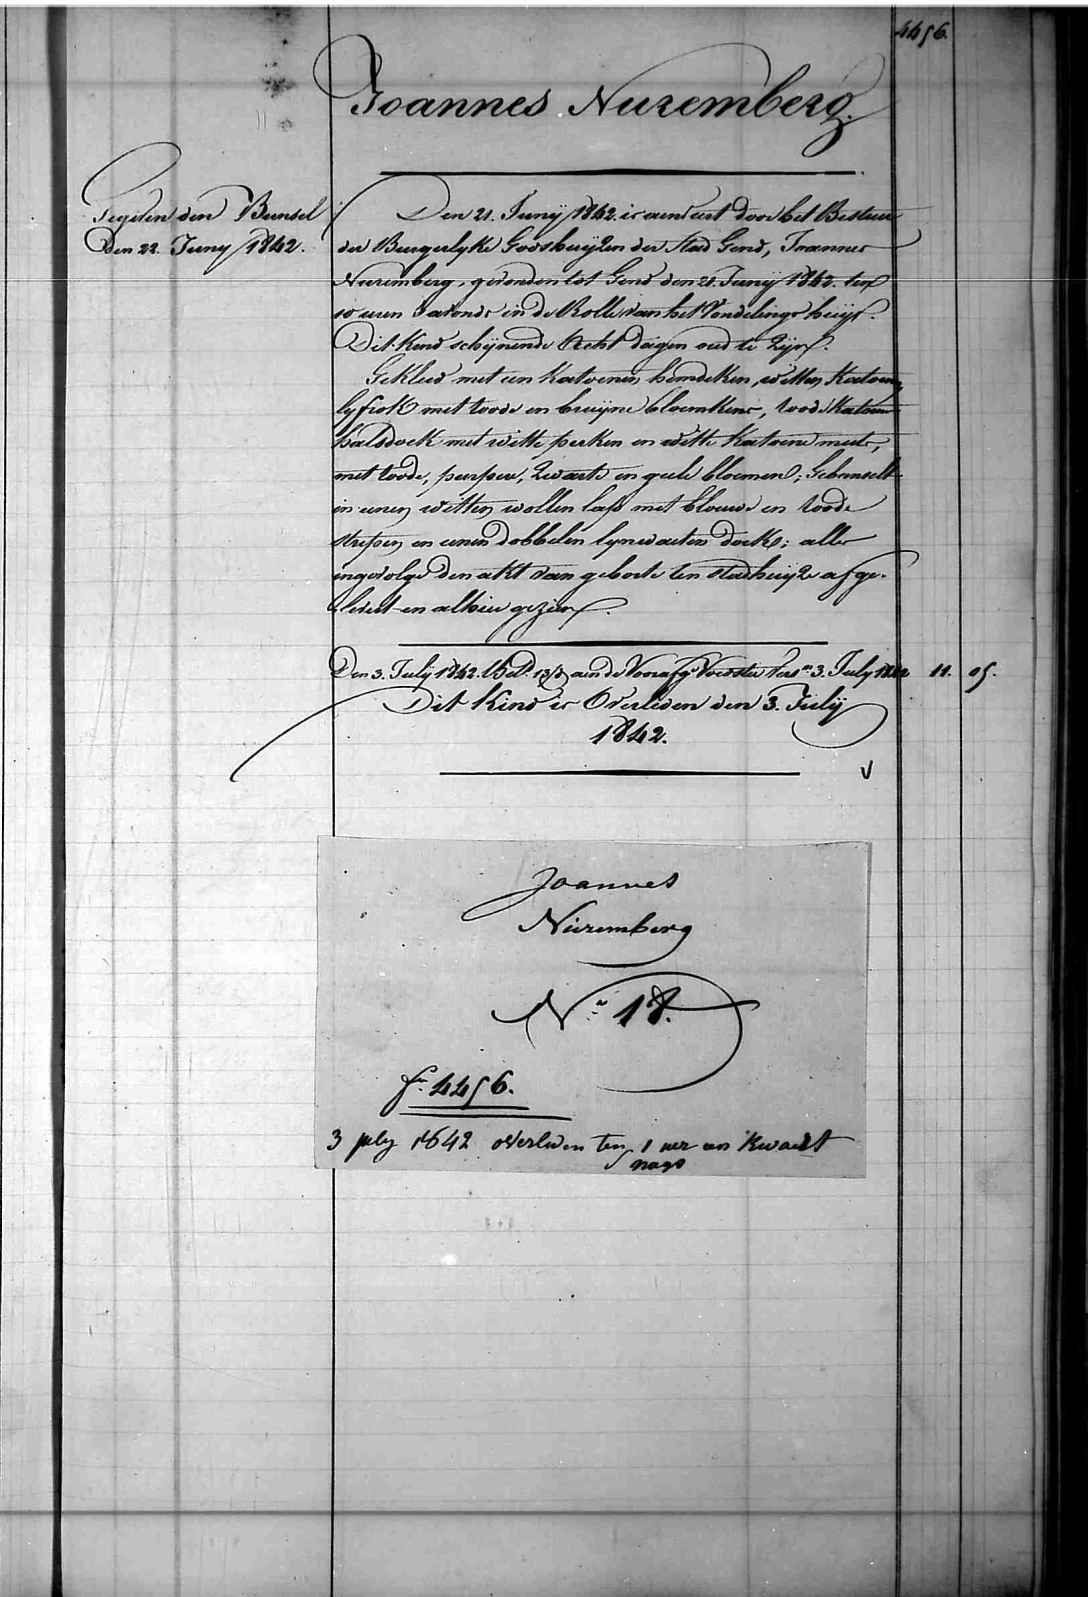 4456.
Joannes Nuremberg.
Gegeven den Bunsel
Den 22. Juny 1842.
Den 21. Junÿ 1842. is aenveirt door het Bestuur
der Burgerlyke Godshuÿzen der Stad Gend, Joannes
Nuremberg, gevonden tot Gend den 21. Junÿ 1842. ten
10 uren s'avonds in de Rolle van het Vondelings huÿs.
Dit Kind schÿnende Acht dagen oud te Zÿn.
Gekleed met een katoenen hemdeken, witten Katoenen
lyfrok met roode en bruÿne bloemkens, roode Katoene
halsdoek met witte perken en witte Katoene muts,
met roode, purpere, Zwarte en geele bloemen; Gebunselt
in eenen witten wollen lap met blouwe en roode
strepen en eenen dobbelen lynwaeten doek; alles
ingevolge den akt van geboorte ten stadhuÿze afge-
levert en alhier gezien.
Den 3. July 1842. Bet. 13/d aen de Voorafge Voedster 3. July 1842 11. 05.
Dit Kind is Overleden den 3. Julÿ
1842.
V
Joannes
Nuremberg
No 18.
fo. 4456.
3 july 1842 overleden ten 1 uer en kwaert
s nags